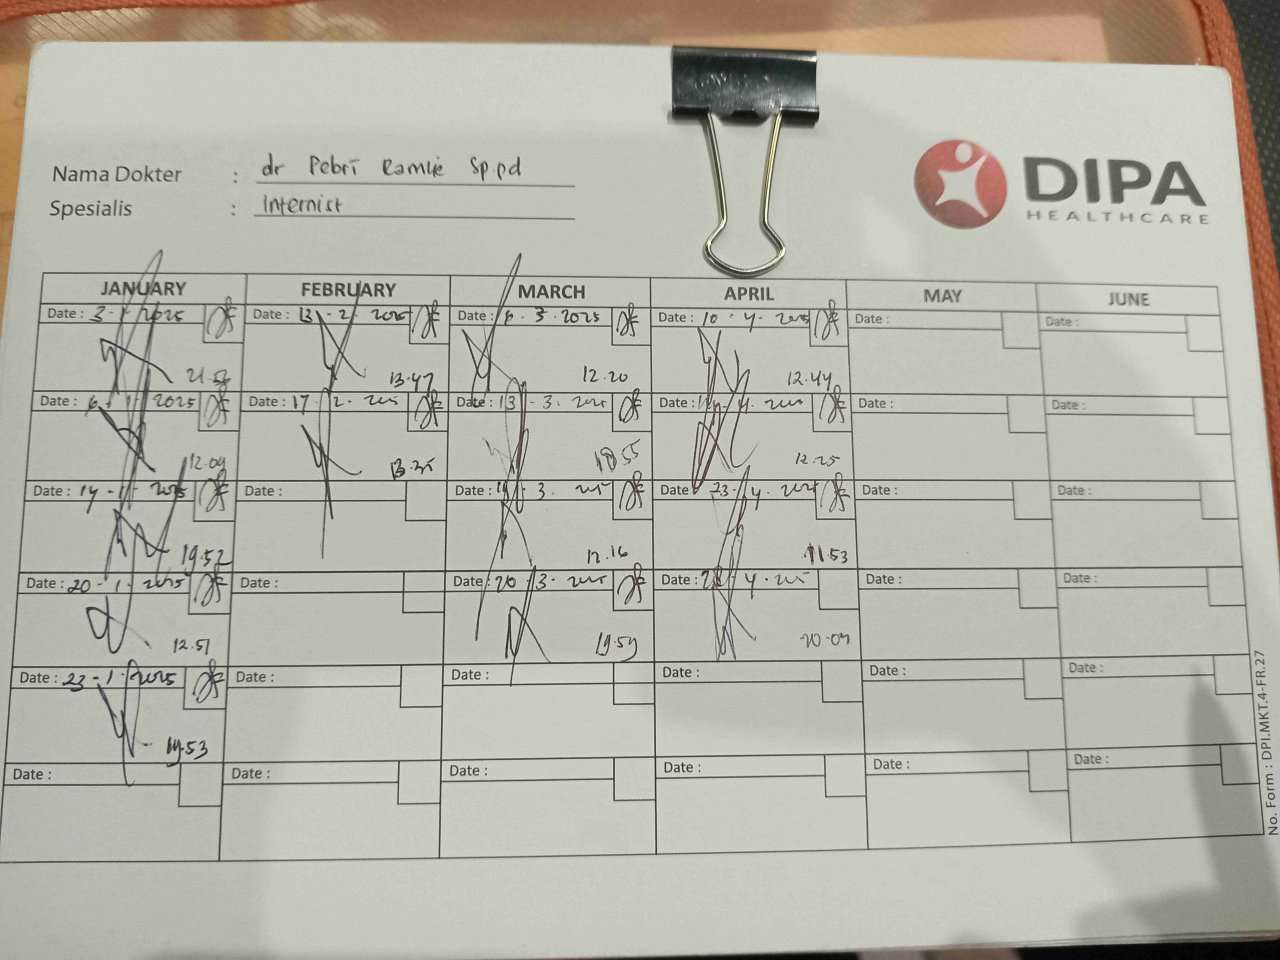 Nama Dokter : dr Pebri Ramlie Sp.pd
Spesialis : Internist
DIPA
HEALTHCARE
JANUARY FEBRUARY MARCH APRIL MAY JUNE
Date : 3-1-2025 Date : 13-2-2025 Date : 6.3.2025 Date : 10.4-2025 Date : Date :
13.47 12.20 12.44
Date : 6-1-2025 Date : 17-2-2025 Date : 13-3-2025 Date : 4-2025 Date : Date :
12.09 18.55 12.25
Date : 14-1-2025 Date : Date : 3. 2025 Date : 23-4-2025 Date : Date :
19.52 12.16 11.53
Date : 20-1-2025 Date : Date : 20-3-2025 Date : 4-2025 Date : Date :
12.51 19.59 20.09
Date : 23-1-2025 Date : Date : Date : Date : Date :
19.53
Date : Date : Date : Date : Date : Date :
No. Form : DPI.MKT.4-FR.27